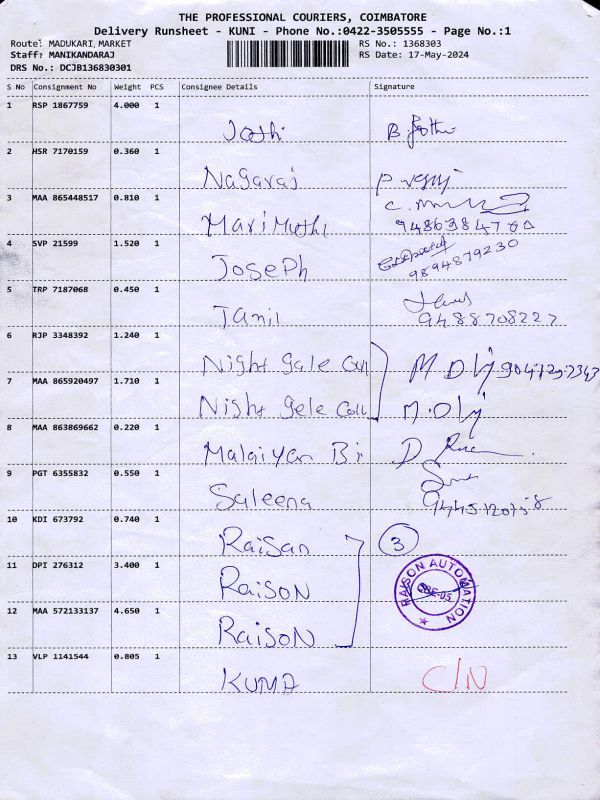 THE PROFESSIONAL COURIERS, COIMBATORE
Delivery Runsheet - KUNI - Phone No.:0422-3505555 - Page No.:1
Route: MADUKARI MARKET RS No.: 1368303
Staff: MANIKANDARAJ RS Date: 17-May-2024
DRS No.: DCJB136830301
S No Consignment No Weight PCS Consignee Details Signature
1 RSP 1867759 4.000 1
Jothi B.
2 HSR 7170159 0.360 1
Nagaraj P.
3 MAA 865448517 0.810 1
MariMuthu C.
9486384760
4 SVP 21599 1.520 1
Joseph 9894879230
5 TRP 7187068 0.450 1
Tamil
9488708227
6 RJP 3348392 1.240 1
Night gale Coll M.
7 MAA 865920497 1.710 1
Night gele Coll M.
8 MAA 863869662 0.220 1
Malaiyan Bi D.
9 PGT 6355832 0.550 1
Saleena
10 KDI 673792 0.740 1
Raisan 3
11 DPI 276312 3.400 1
Raison RAISON AUTOMATION
CBE-05
12 MAA 572133137 4.650 1
RaisoN
13 VLP 1141544 0.805 1
KUMA C/N